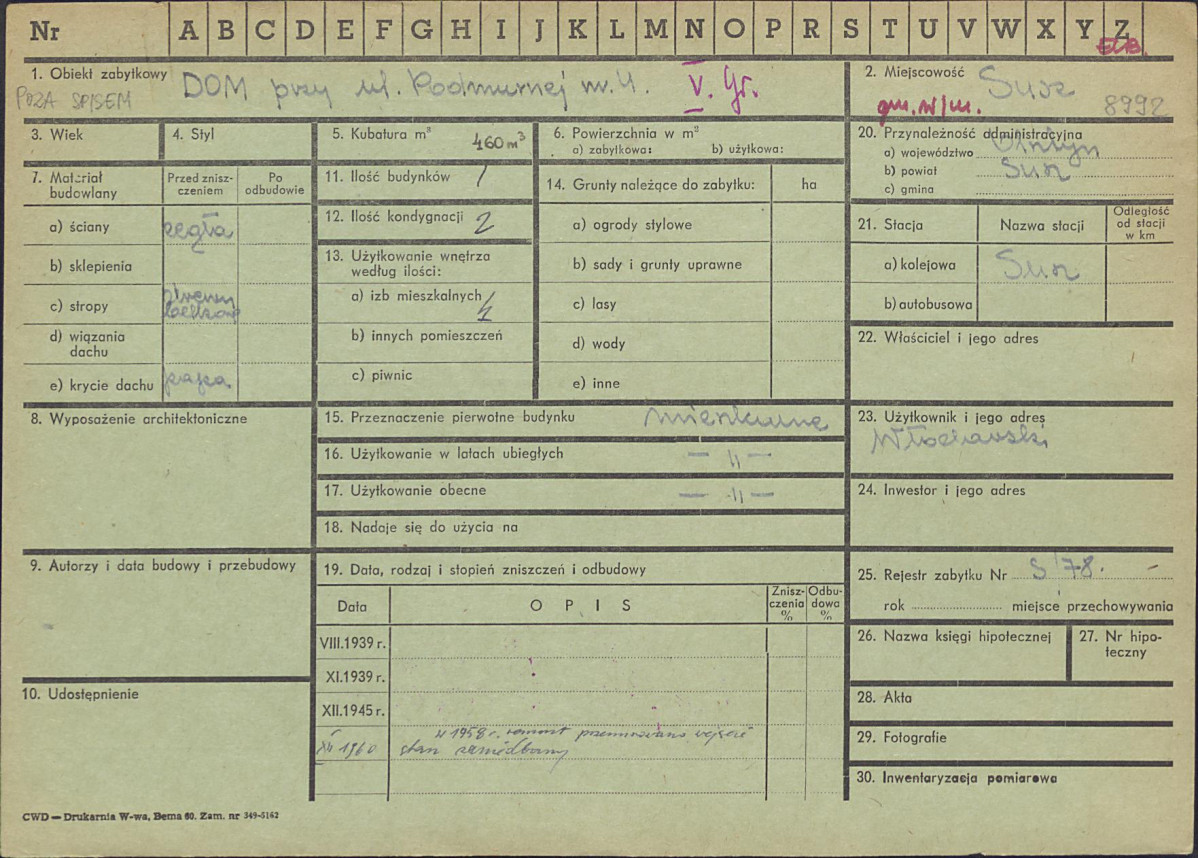 Nr A B C D E F G H I J K L M N O P R S T U V W X Y Z
ELB.
1. Obiekt zabytkowy DOM przy ul. Podmurnej nr. 4. V. Gr.
POZA SPISEM
2. Miejscowość Susz
gm. w/m. 8992
3. Wiek
4. Styl
5. Kubatura m³ 460 m³
6. Powierzchnia w m²
a) zabytkowa: b) użytkowa:
20. Przynależność administracyjna
a) województwo Olsztyn
b) powiat Susz
c) gmina
7. Materiał budowlany
Przed zniszczeniem
Po odbudowie
a) ściany cegła
b) sklepienia
c) stropy drewn belkow
d) wiązania dachu
e) krycie dachu papa
11. Ilość budynków 1
12. Ilość kondygnacji 2
13. Użytkowanie wnętrza według ilości:
a) izb mieszkalnych
b) innych pomieszczeń
c) piwnic
14. Grunty należące do zabytku: ha
a) ogrody stylowe
b) sady i grunty uprawne
c) lasy
d) wody
e) inne
21. Stacja Nazwa stacji Odległość od stacji w km
a) kolejowa Susz
b) autobusowa
22. Właściciel i jego adres
8. Wyposażenie architektoniczne
15. Przeznaczenie pierwotne budynku mieszkalne
16. Użytkowanie w latach ubiegłych — " —
17. Użytkowanie obecne — " —
18. Nadaje się do użycia na
23. Użytkownik i jego adres
24. Inwestor i jego adres
9. Autorzy i data budowy i przebudowy
19. Data, rodzaj i stopień zniszczeń i odbudowy
Data O P I S Zniszczenia % Odbudowa %
VIII.1939 r.
XI.1939 r.
XII.1945 r.
w 1958 r. remont przemurowano wejście
XII 1960 stan zaniedbany
25. Rejestr zabytku Nr S/78.
rok miejsce przechowywania
26. Nazwa księgi hipotecznej
27. Nr hipoteczny
10. Udostępnienie
28. Akta
29. Fotografie
30. Inwentaryzacja pomiarowa
CWD — Drukarnia W-wa, Bema 60. Zam. nr 349-5162